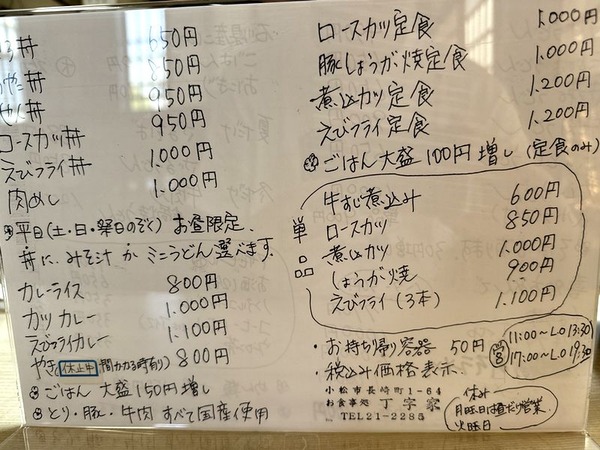 丼 650円
丼 850円
丼 950円
ロースカツ丼 950円
えびフライ丼 1.000円
肉めし 1.000円
平日(土・日・祭日のぞく) お昼限定、
丼に、みそ汁か ミニうどん選べます。
カレーライス 800円
カツカレー 1.000円
えびフライカレー 1.100円
休止中 800円
ごはん 大盛150円増し
とり・豚・牛肉 すべて国産使用
ロースカツ定食 1.000円
豚しょうが焼定食 1.000円
煮込カツ定食 1.200円
えびフライ定食 1.200円
ごはん大盛100円増し(定食のみ)
単品
牛すじ煮込み 600円
ロースカツ 850円
煮込カツ 1.000円
しょうが焼 900円
えびフライ(3本) 1.100円
・お持ち帰り容器 50円
・税込み価格表示、
11:00〜L.O 13:30
17:00〜L.O 19:30
小松市長崎町1-64
お食事処 丁字家
TEL21-2285
休み
月曜日は昼だけ営業
火曜日